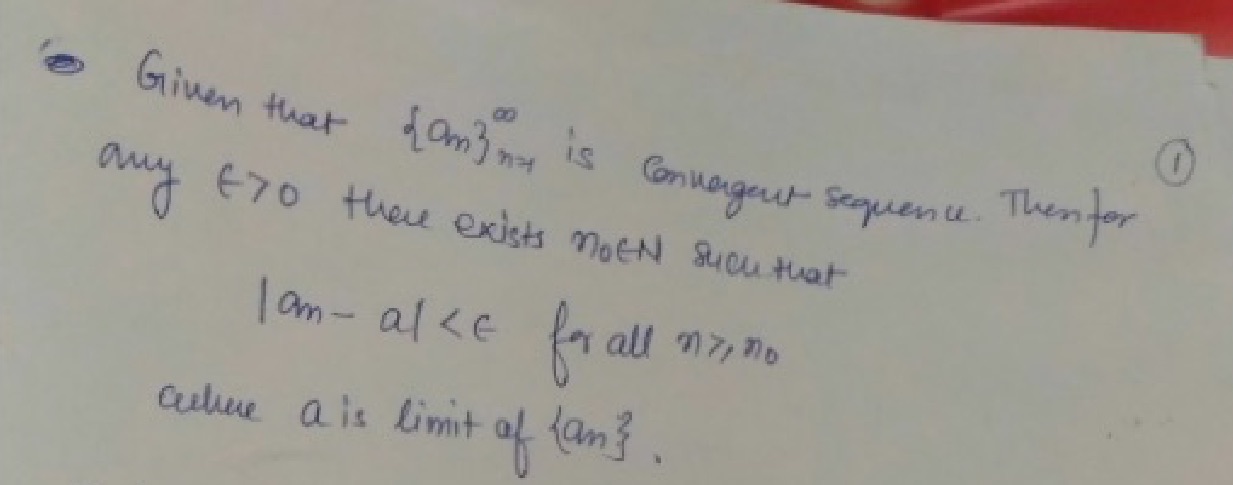 Given that {an}∞n=1 is Convergent sequence. Then for
①
any ϵ>0 there exists n₀∈N such that
|an - a| < ϵ for all n ≥ n₀
where a is limit of {an}.